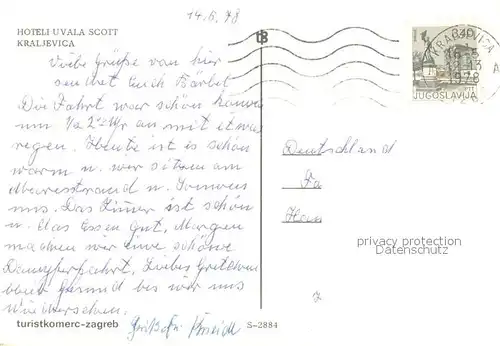 14.6.78
HOTELI UVALA SCOTT
KRALJEVICA
Viele Grüße von hier
sendet Euch Bärbel
Die Fahrt war schön kamen
um ½ 2 Uhr an mit etwas
regen. Heute ist es schön
warm u. wir sitzen am
Meeresstrand u. Sonnen
uns. Das Zimmer ist schön
u. das Essen gut, Morgen
machen wir eine schöne
Dampferfahrt, Liebes Gretchen
bleib Gesund bis wir uns
wiedersehen.
turistkomerc-zagreb
S-2884
KRALJEVICA
1978
JUGOSLAVIJA
Deutschland
Fa
privacy protection
Datenschutz